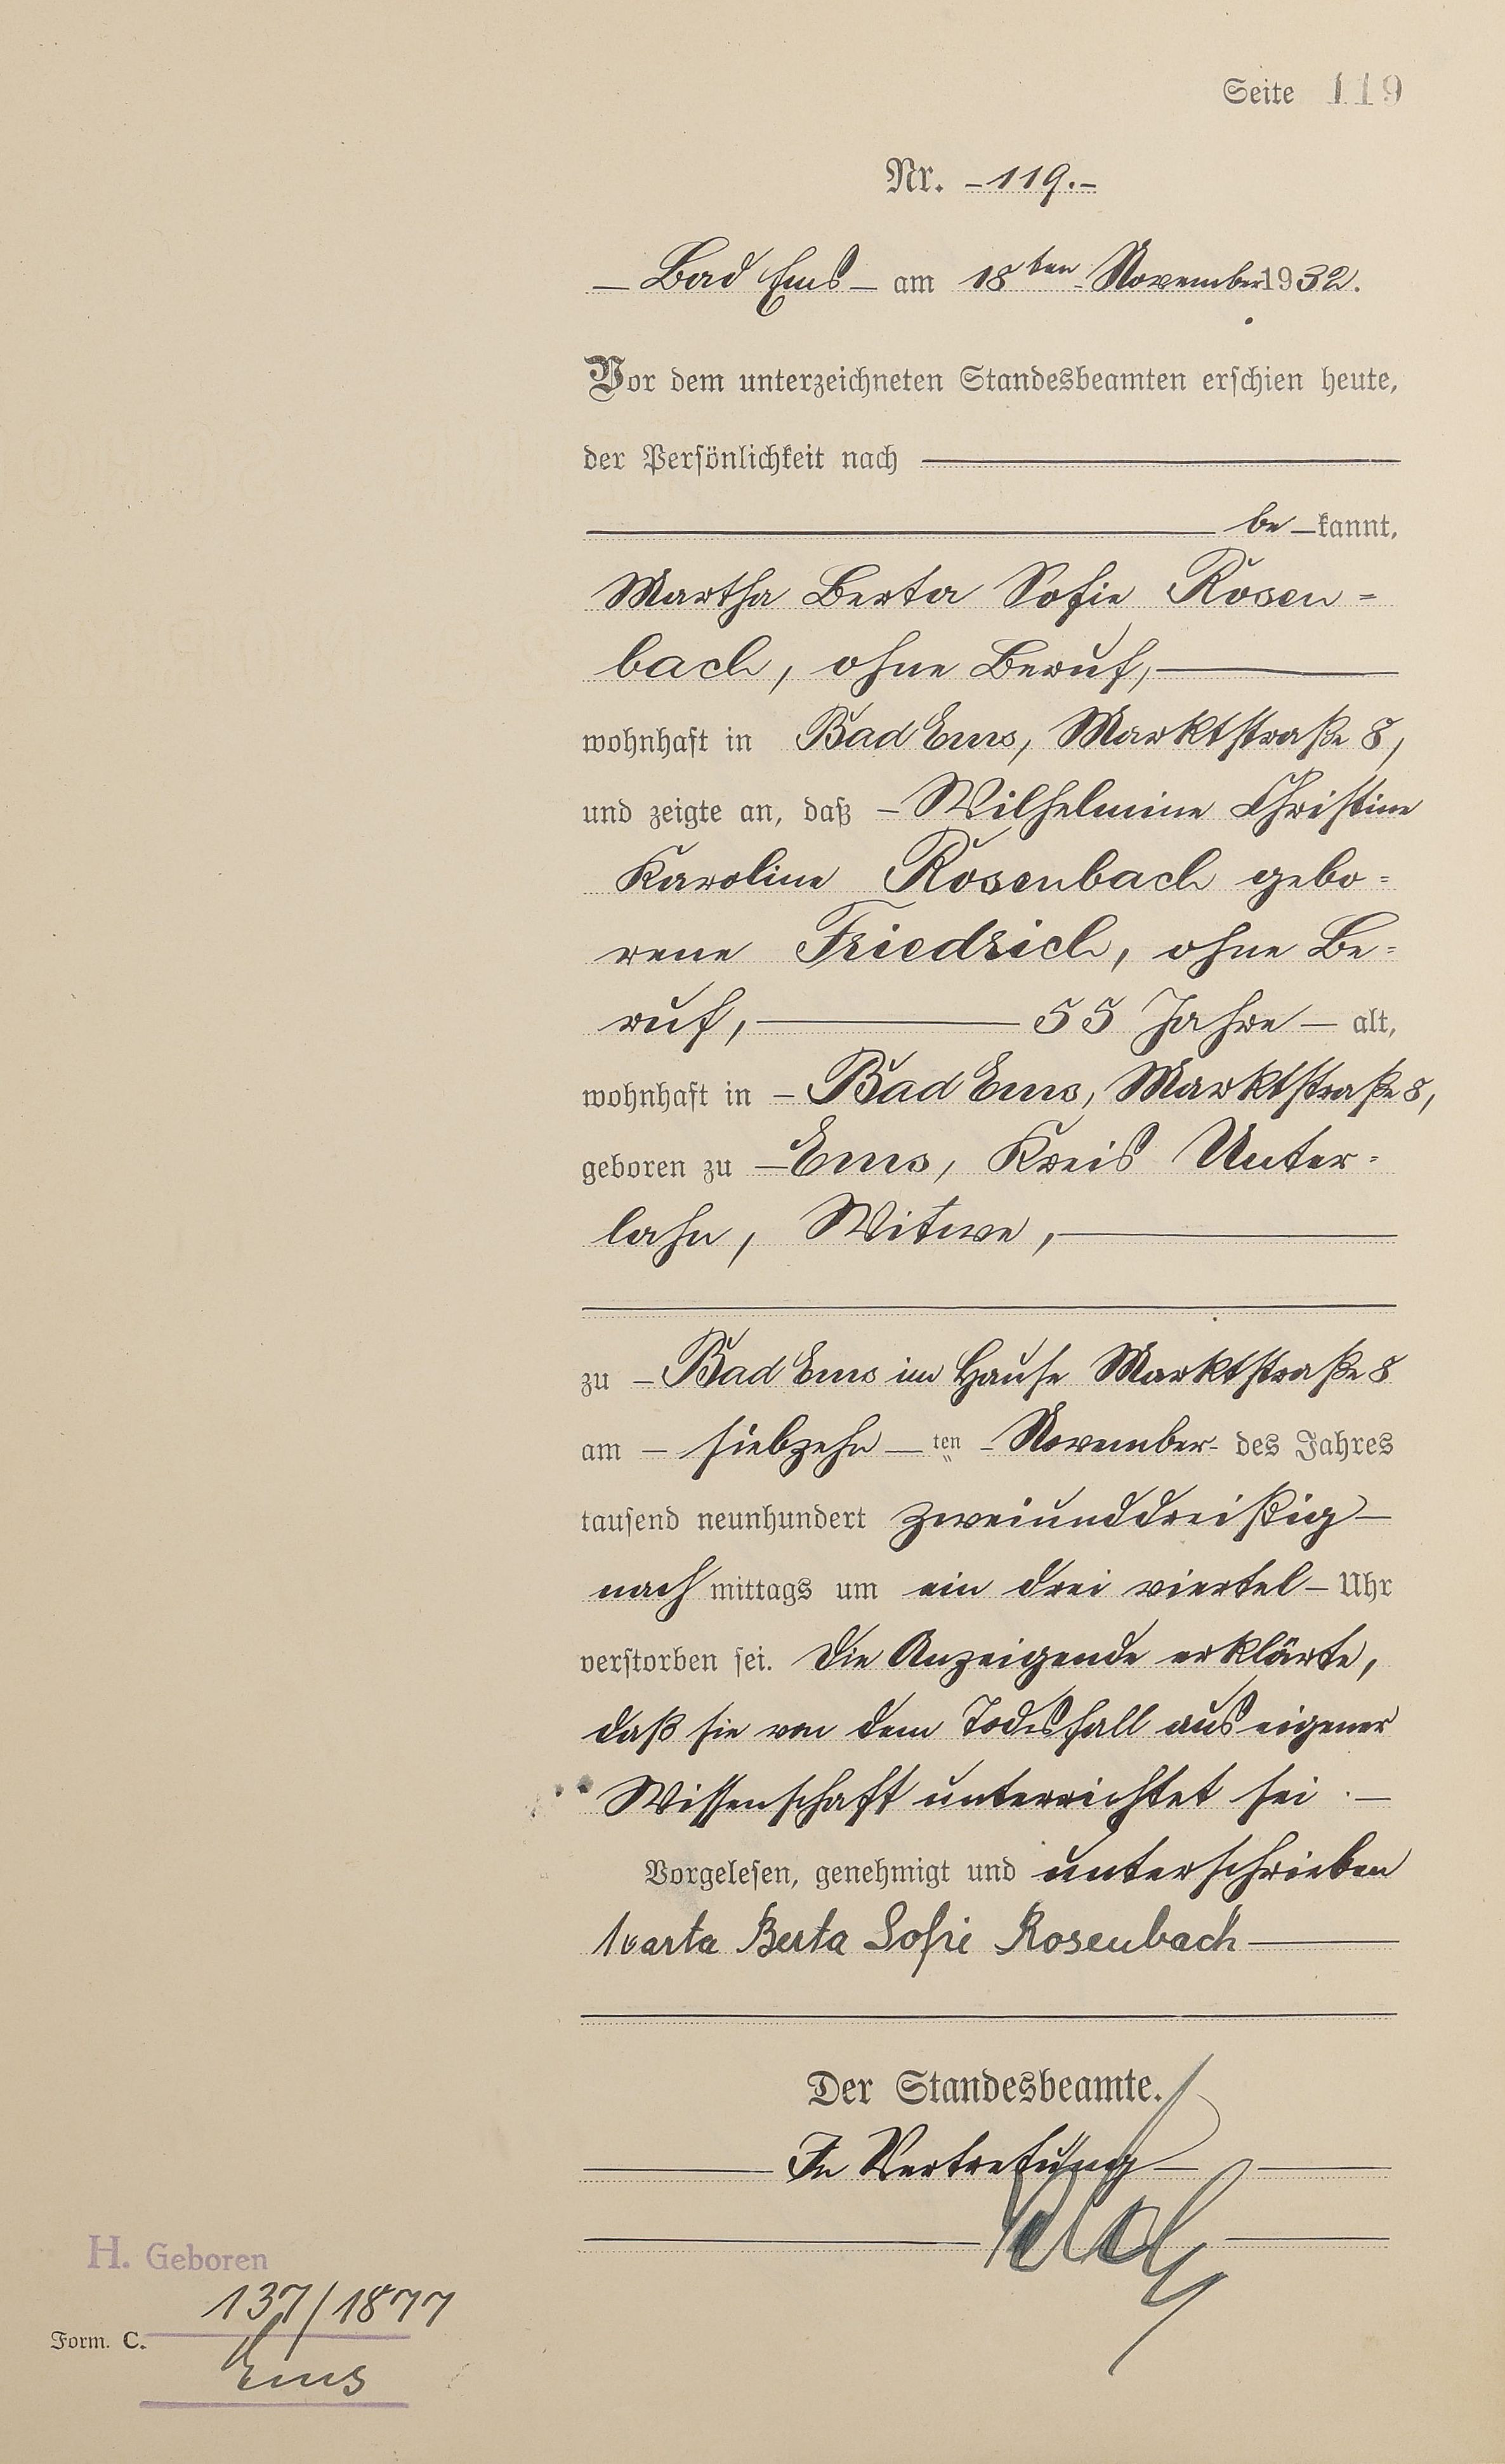 Seite 119
Nr. -119.-
— Bad Ems — am 18ten November 1932.
Vor dem unterzeichneten Standesbeamten erschien heute,
der Persönlichkeit nach
be—kannt,
Martha Berta Sofie Rosen=
bach, ohne Beruf,
wohnhaft in Bad Ems, Marktstraße 8,
und zeigte an, daß - Wilhelmine Christine
Karoline Rosenbach gebo=
rene Friedrich, ohne Be=
ruf, — 55 Jahre — alt,
wohnhaft in - Bad Ems, Marktstraße 8,
geboren zu - Ems, Kreis Unter=
lahn, Witwe,
zu - Bad Ems im Hause Marktstraße 8
am - siebzehn — ten - November - des Jahres
tausend neunhundert zweiunddreißig —
nach mittags um ein drei viertel — Uhr
verstorben sei. Die Anzeigende erklärte,
daß sie von dem Todesfall aus eigener
Wissenschaft unterrichtet sei. —
Vorgelesen, genehmigt und unterschrieben
Marta Berta Sofie Rosenbach
Der Standesbeamte.
In Vertretung
H. Geboren
137/1877
Form. C.
Ems